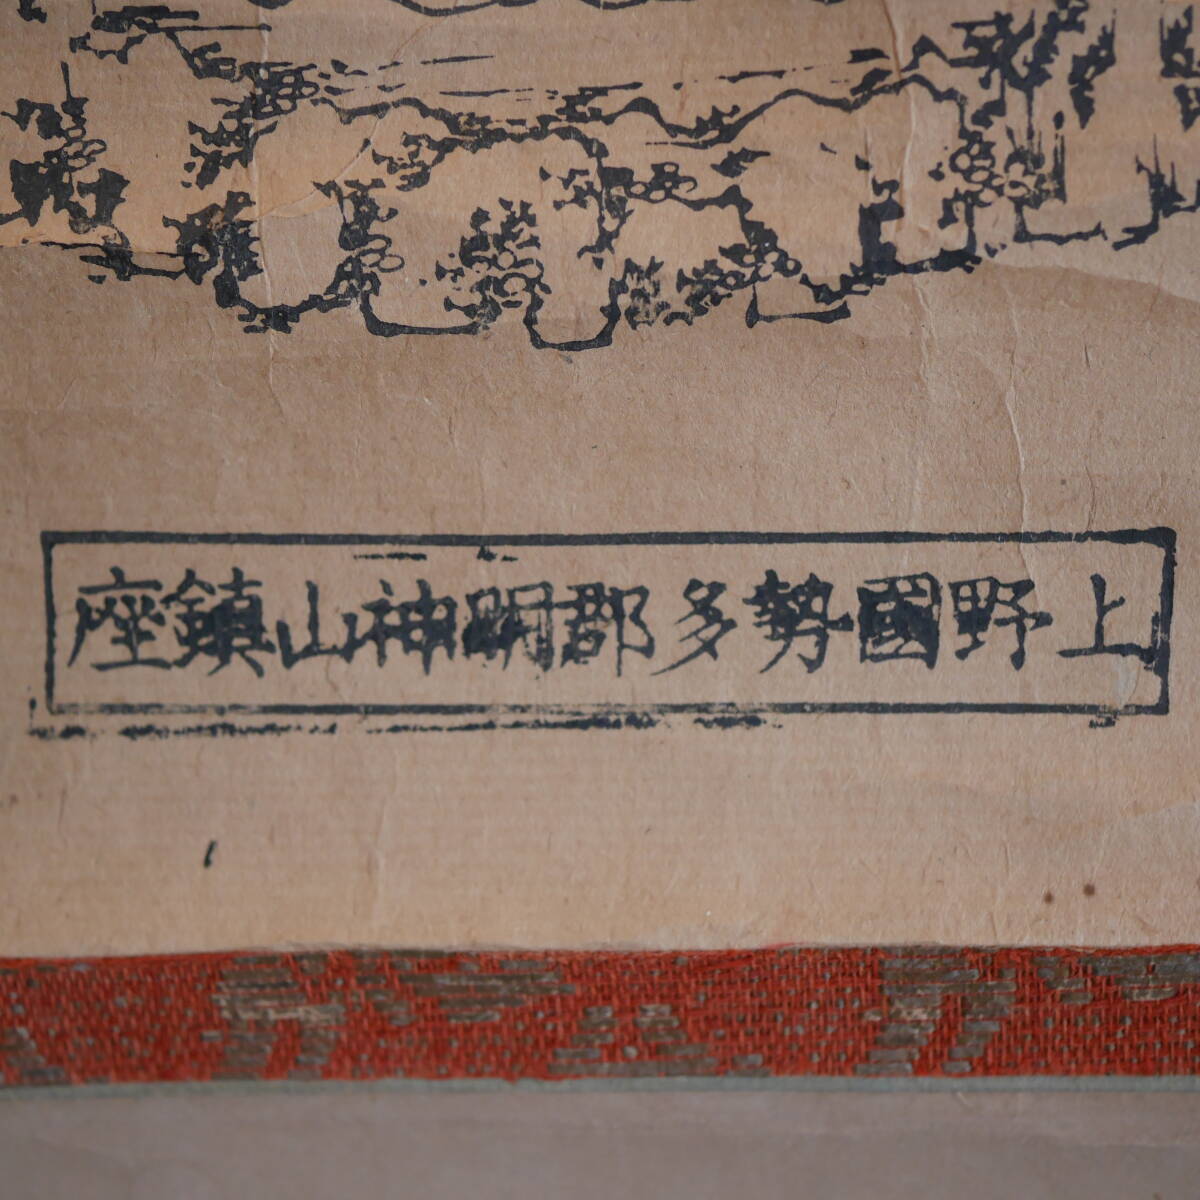 上野國勢多郡明神山鎮座